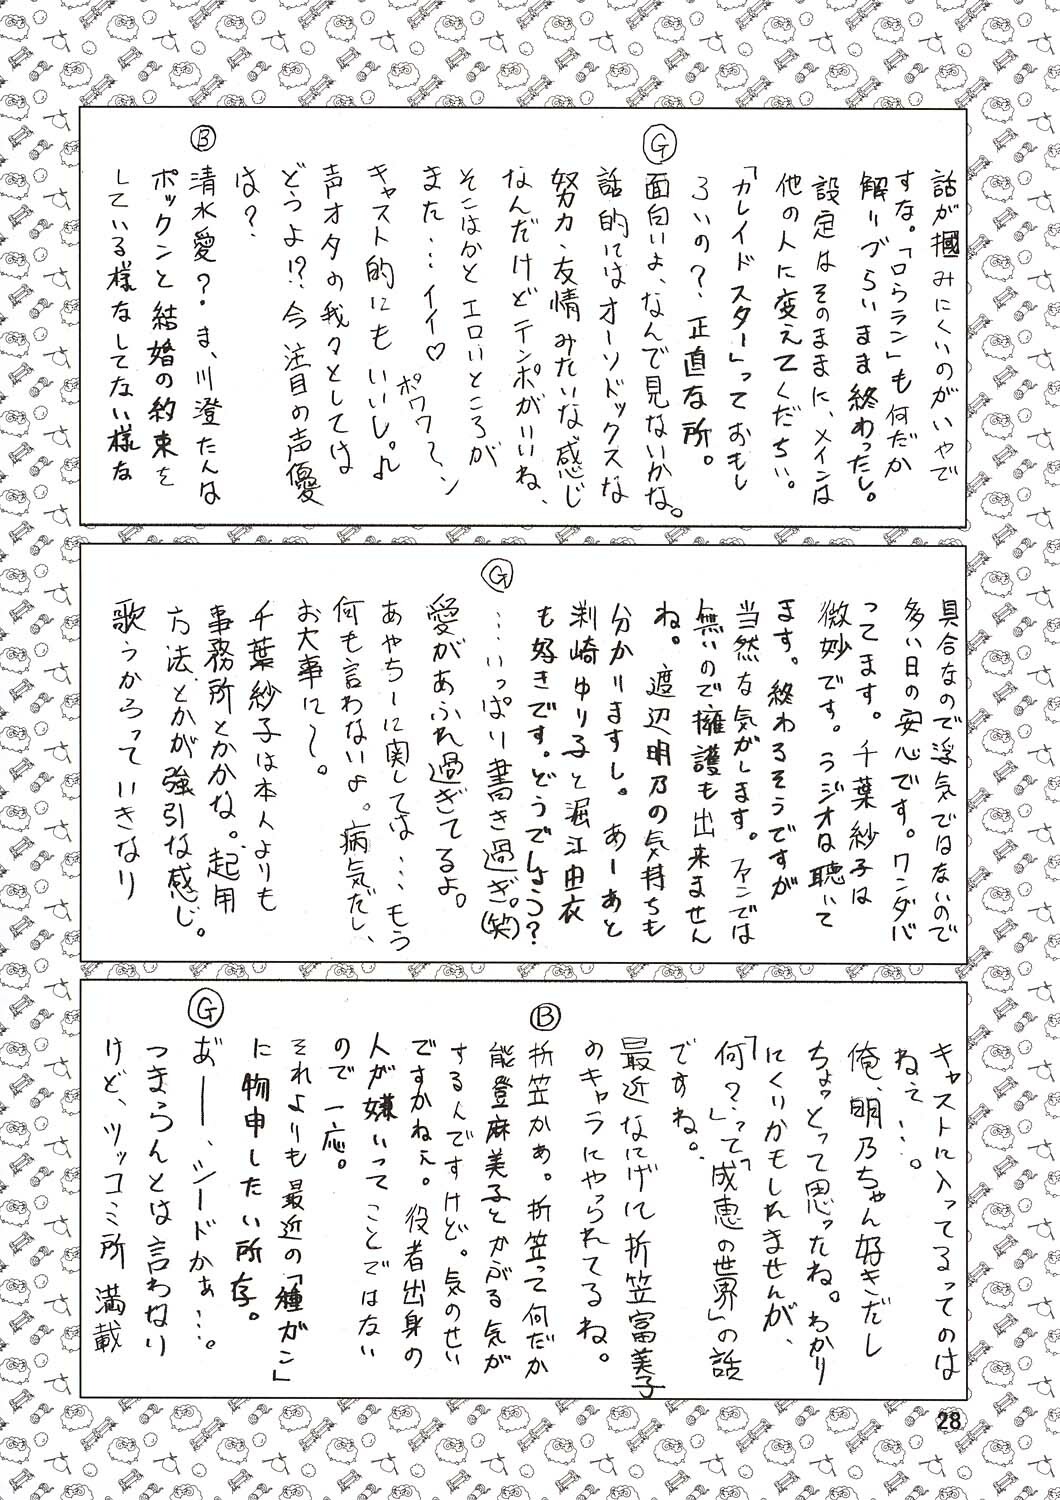 話が掴みにくいのがいやで
すな。「ロうラン」も何だか
解りづらいまま終わったし。
設定はそのままに、メインは
他の人に変えてくだちい。
「カレイドスター」っておもし
ろいの？正直な所。
Ⓖ
面白いよ、なんで見ないかな。
話的にはオーソドックスな
努力、友情みたいな感じ
なんだけどテンポがいいね、
そこはかとエロいところが
また…イイ♡ポワワ～ン
キャスト的にもいいし。♪
声オタの我々としては
どうよ!?今注目の声優
は？
Ⓑ
清水愛？ま、川澄たんは
ポックンと結婚の約束を
している様なしてない様な
具合なので浮気ではないので
多い日の安心です。ワンダバ
ってます。千葉紗子は
微妙です。ラジオは聴いて
ます。終わるそうですが
当然な気がします。ファンでは
無いので擁護も出来ません
ね。渡辺明乃の気持ちも
分かりますし。あーあと
剥崎ゆり子と堀江由衣
も好きです。どうでしょう？
Ⓖ
…いっぱい書き過ぎ。(笑)
愛があふれ過ぎてるよ。
あやちーに関しては…もう
何も言わないよ。病気だし、
お大事に～。
千葉紗子は本人よりも
事務所とかかな。起用
方法とかが強引な感じ。
歌うからっていきなり
キャストに入ってるってのは
ねぇ…。
俺、明乃ちゃん好きだし
ちょっとって思ったね。わかり
にくいかもしれませんが、
「何？」って「成恵の世界」の話
ですね。
最近なにげに折笠富美子
のキャラにやられてるね。
Ⓑ
折笠かぁ。折笠って何だか
能登麻美子とかぶる気が
するんですけど。気のせい
ですかねぇ。役者出身の
人が嫌いってことではない
ので一応。
それよりも最近の「種ガン」
に物申したい所存。
Ⓖ
あ゛ー、シードかぁ…。
つまらんとは言わない
けど、ツッコミ所満載
28